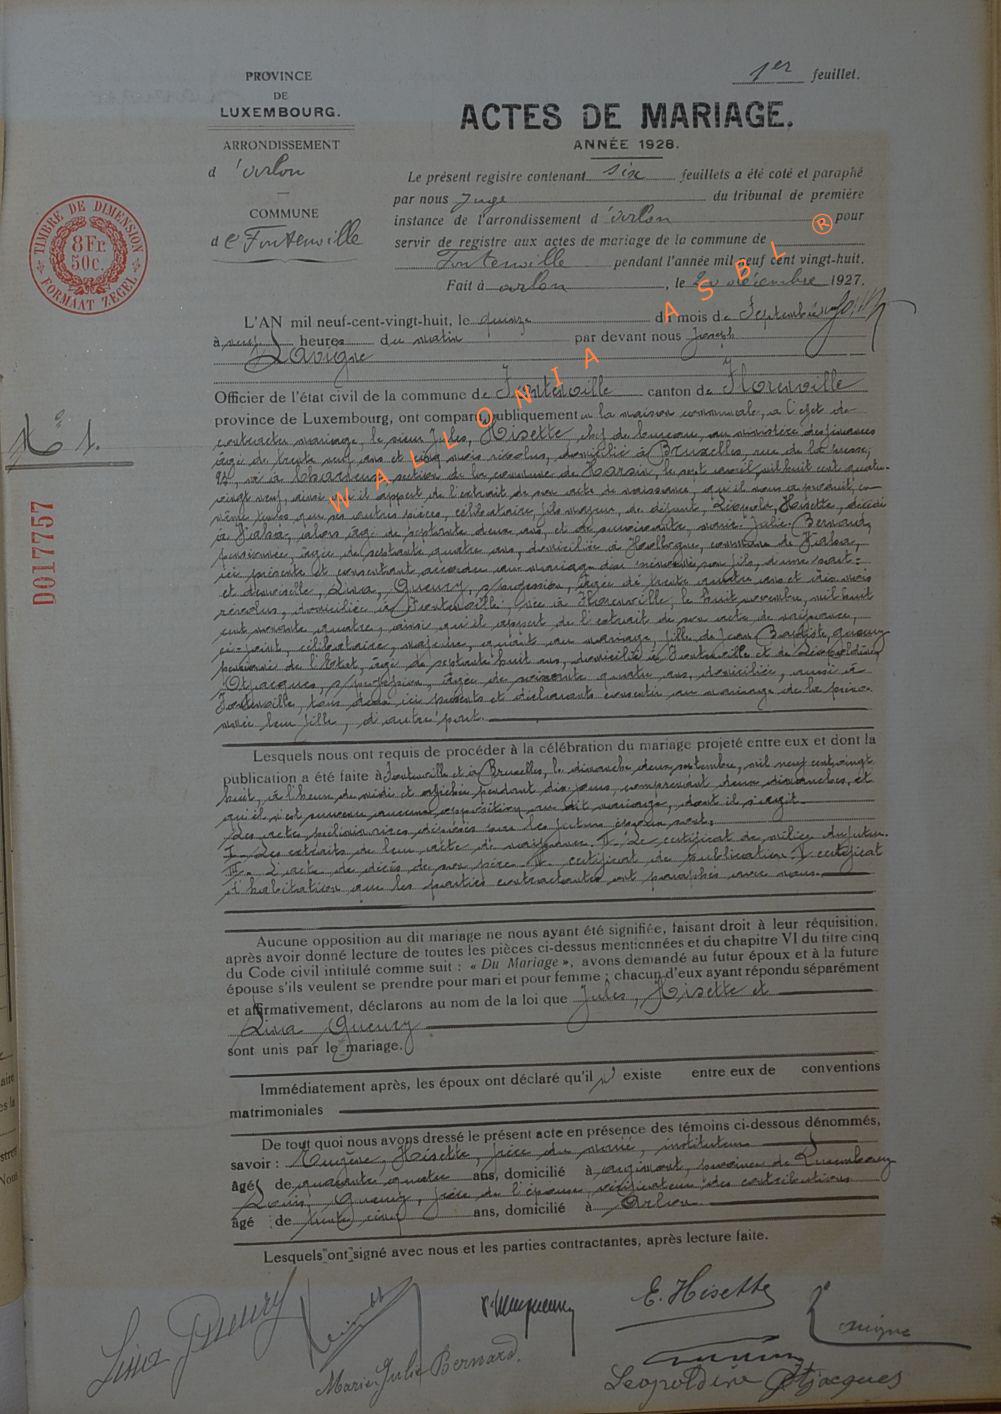 1er feuillet.
PROVINCE
DE
LUXEMBOURG.
ARRONDISSEMENT
d'Arlon
COMMUNE
de Fontenoille
TIMBRE DE DIMENSION
8 Fr.
50 c.
FORMAAT ZEGEL
ACTES DE MARIAGE.
ANNÉE 1928.
Le présent registre contenant six feuillets a été coté et paraphé
par nous Juge du tribunal de première
instance de l'arrondissement d'Arlon pour
servir de registre aux actes de mariage de la commune de
Fontenoille pendant l'année mil neuf cent vingt-huit.
Fait à Arlon, le décembre 1927.
WALLONIA ASBL ®
No 1.
D017757
L'AN mil neuf-cent-vingt-huit, le quinze du mois de Septembre
à neuf heures du matin par devant nous Joseph
Lavigne
Officier de l'état civil de la commune de Fontenoille canton de Florenville
province de Luxembourg, ont comparu publiquement en la maison communale, a l'efet de
contracter mariage, le sieur Jules, Hisette, chef de bureau, au ministère des finances
âgé de trente neuf ans et cinq mois révolus, domicilié à Bruxelles, rue de la
né à section de la commune de le sept avril, mil huit cent quatre
vingt neuf, ainsi qu'il appert de l'extrait de son acte de naissance, qu'il nous a produit, en
même temps que ses autres pièces, célibataire, fils majeur de défunt, Hisette, décédé
à alors âgé de septante deux ans, et de survivante, Marie Julie Bernard,
pensionnée, âgée de septante quatre ans, domiciliée à commune de
ici présente et consentant accorder au mariage du son fils, d'une part:
et demoiselle, Lina, Queury, s/profession, âgée de trente quatre ans et dix mois
révolus, domiciliée à Fontenoille née à Florenville, le huit novembre, mil huit
cent nonante quatre, ainsi qu'il appert de l'extrait de son acte de naissance,
ci-joint, célibataire, majeure, quant au mariage, fille de Jean Baptiste, Queury
pensionné de l'Etat, âgé de septante huit ans, domicilié à Fontenoille et de Léopoldine,
Otjacques, s/profession, âgée de soixante quatre ans, domiciliée, aussi à
Fontenoille, tous deux ici présents et déclarants consentir au mariage de la préno-
mmée leur fille, d'autre part.
Lesquels nous ont requis de procéder à la célébration du mariage projeté entre eux et dont la
publication a été faite à Fontenoille et à Bruxelles, le dimanche deux septembre, mil neuf cent vingt
huit, à l'heure de midi et affichée pendant dix jours, comprenant deux dimanches, et
qu'il n'est survenu aucune opposition au dit mariage, dont il s'agit.
Les actes préliminaires déposés par les futurs époux sont:
I. Les extraits de leur acte de naissance. II. Le certificat de milice du futur.
III. L'acte de décès de son père. IV. certificat de publication. V. certificat
d'habitation que les parties contractantes ont paraphés avec nous.
Aucune opposition au dit mariage ne nous ayant été signifiée, faisant droit à leur réquisition,
après avoir donné lecture de toutes les pièces ci-dessus mentionnées et du chapitre VI du titre cinq
du Code civil intitulé comme suit : « Du Mariage », avons demandé au futur époux et à la future
épouse s'ils veulent se prendre pour mari et pour femme ; chacun d'eux ayant répondu séparément
et affirmativement, déclarons au nom de la loi que Jules, Hisette et
Lina Queury
sont unis par le mariage.
Immédiatement après, les époux ont déclaré qu'il n' existe entre eux de conventions
matrimoniales
De tout quoi nous avons dressé le présent acte en présence des témoins ci-dessous dénommés,
savoir : Eugène, Hisette, frère du marié, instituteur
âgé de quarante quatre ans, domicilié à Agimont, province de Luxembourg
Louis, Queury, frère de l'épouse, vérificateur des contributions
âgé de trente cinq ans, domicilié à Arlon
Lesquels ont signé avec nous et les parties contractantes, après lecture faite.
Lina Queury
E. Hisette
Marie Julie Bernard.
Léopoldine Otjacques